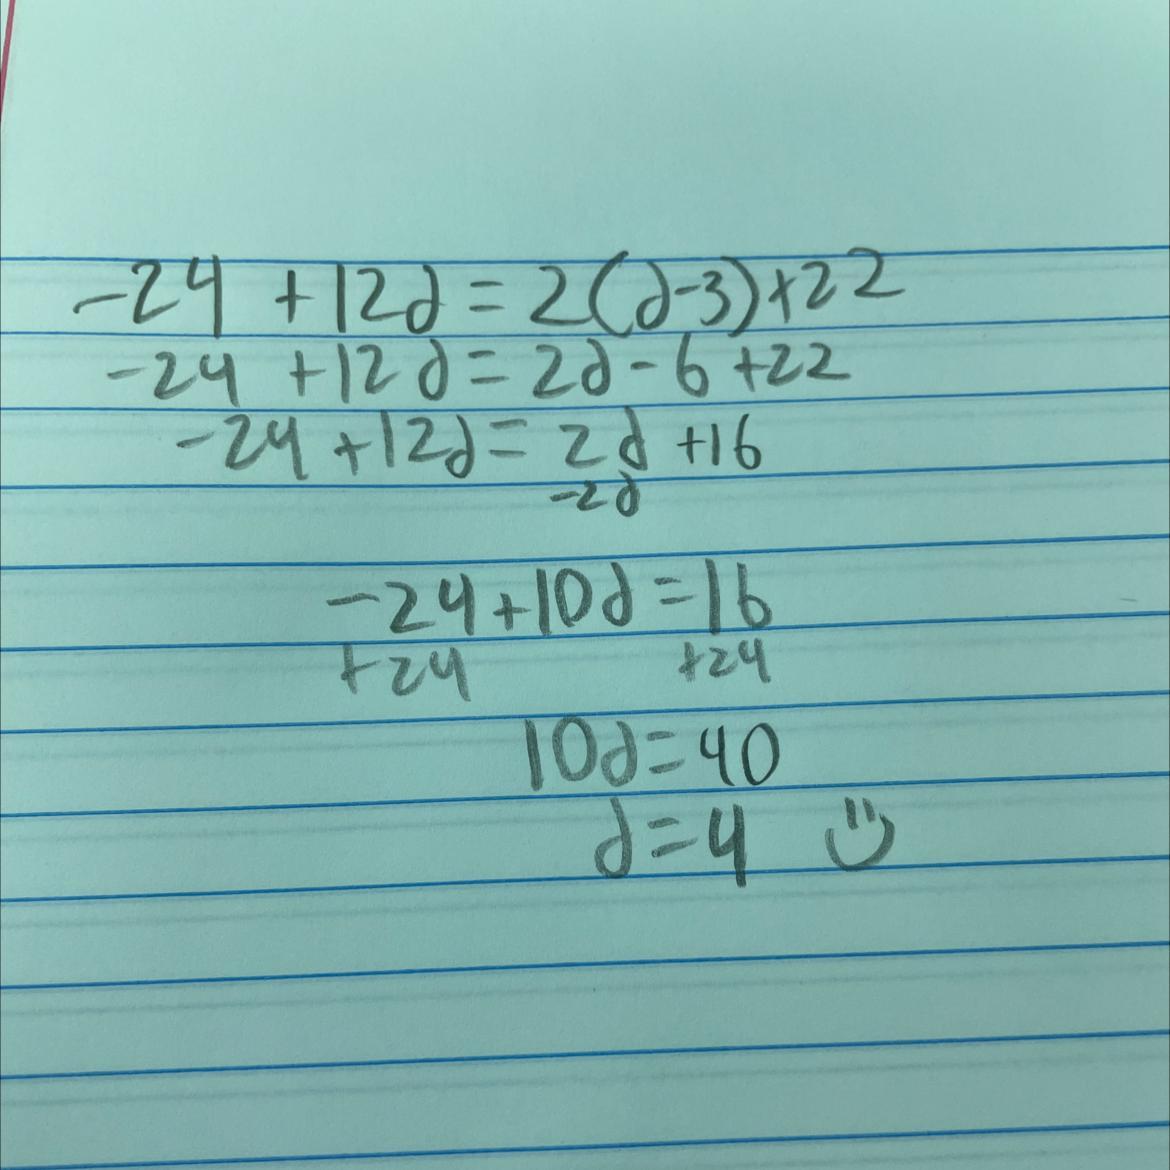 -24 +12d = 2(d-3)+22
-24 +12d = 2d - 6 +22
-24 +12d = 2d +16
-2d
-24+10d = 16
+24 +24
10d = 40
d = 4